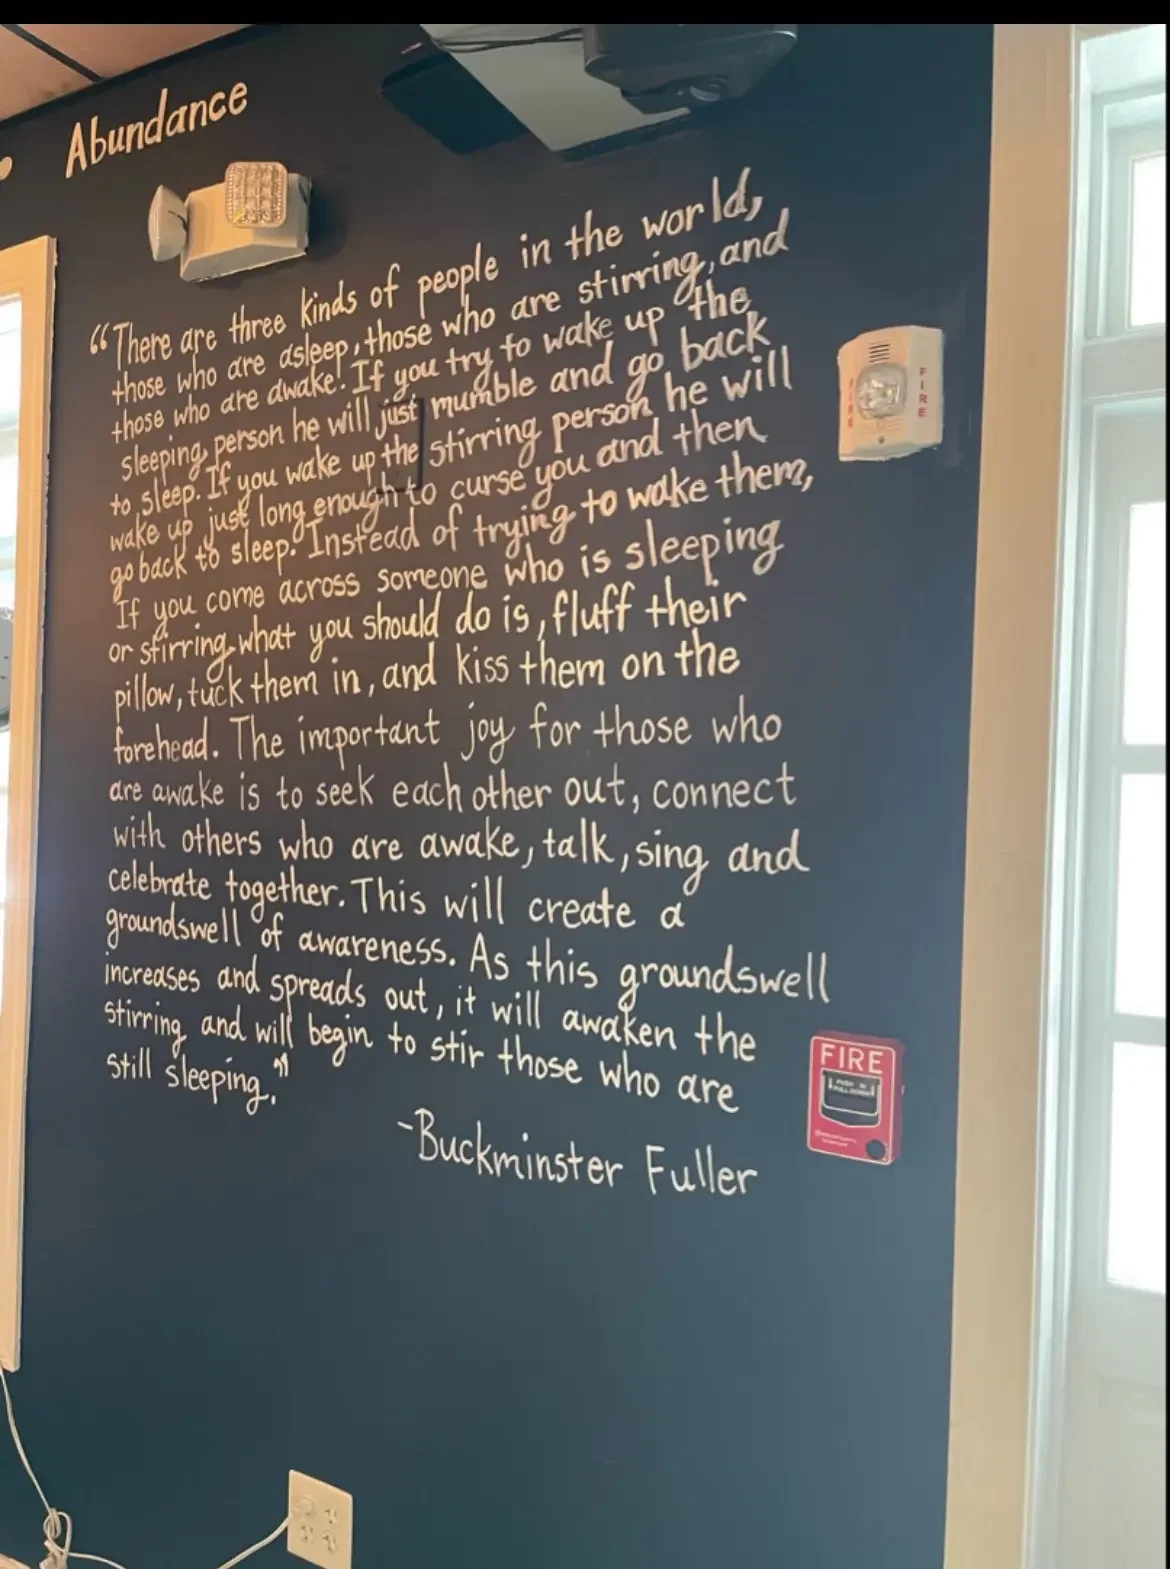 Abundance
“There are three kinds of people in the world,
those who are asleep, those who are stirring, and
those who are awake. If you try to wake up the
sleeping person he will just mumble and go back
to sleep. If you wake up the stirring person he will
wake up just long enough to curse you and then
go back to sleep. Instead of trying to wake them,
If you come across someone who is sleeping
or stirring, what you should do is, fluff their
pillow, tuck them in, and kiss them on the
forehead. The important joy for those who
are awake is to seek each other out, connect
with others who are awake, talk, sing and
celebrate together. This will create a
groundswell of awareness. As this groundswell
increases and spreads out, it will awaken the
stirring and will begin to stir those who are
still sleeping.”
-Buckminster Fuller
FIRE
FIRE
FIRE
PUSH IN
PULL DOWN